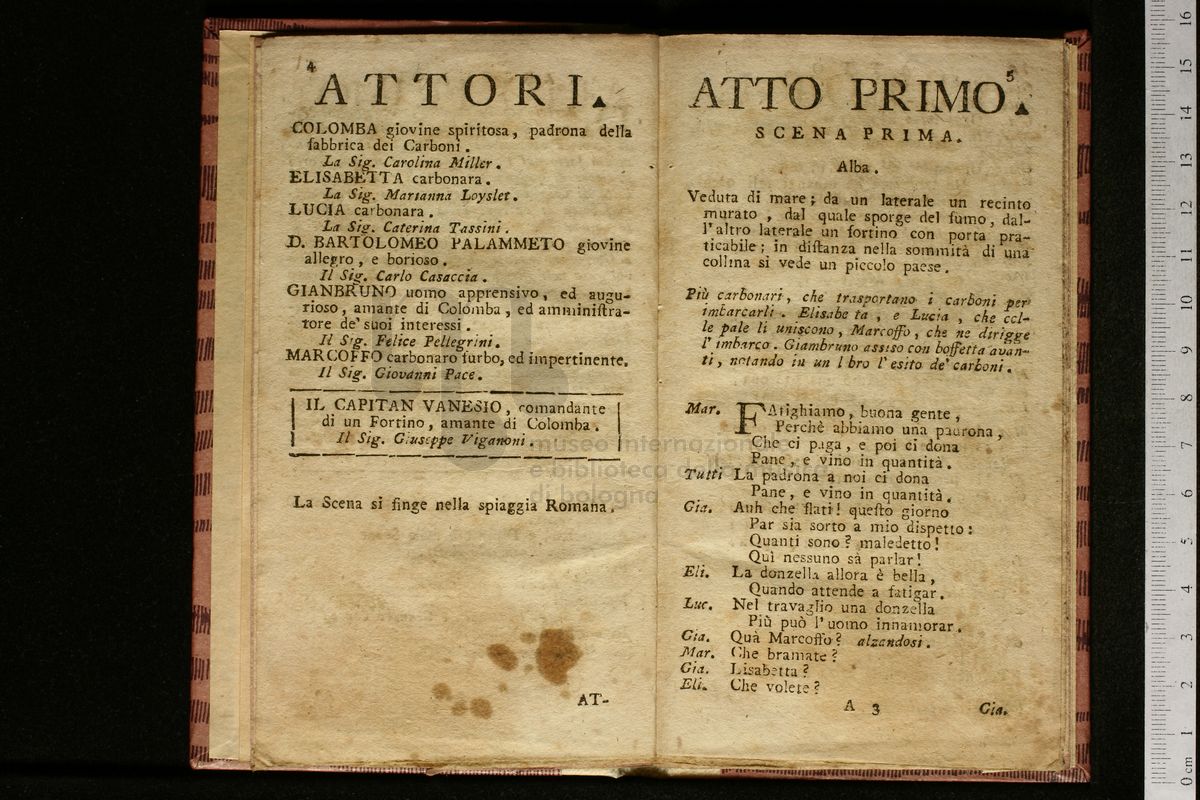 4
ATTORI.
COLOMBA giovine spiritosa, padrona della
fabbrica dei Carboni.
La Sig. Carolina Miller.
ELISABETTA carbonara.
La Sig. Marianna Loyslet.
LUCIA carbonara.
La Sig. Caterina Tassini.
D. BARTOLOMEO PALAMMETO giovine
allegro, e borioso.
Il Sig. Carlo Casaccia.
GIANBRUNO uomo apprensivo, ed augu-
rioso, amante di Colomba, ed amministra-
tore de' suoi interessi.
Il Sig. Felice Pellegrini.
MARCOFFO carbonaro furbo, ed impertinente.
Il Sig. Giovanni Pace.
IL CAPITAN VANESIO, comandante
di un Fortino, amante di Colomba.
Il Sig. Giuseppe Viganoni.
La Scena si finge nella spiaggia Romana.
AT-
5
ATTO PRIMO.
SCENA PRIMA.
Alba.
Veduta di mare; da un laterale un recinto
murato, dal quale sporge del fumo, dal-
l'altro laterale un fortino con porta pra-
ticabile; in distanza nella sommità di una
collina si vede un piccolo paese.
Più carbonari, che trasportano i carboni per
imbarcarli. Elisabe ta, e Lucia, che col-
le pale li uniscono, Marcoffo, che ne dirigge
l'imbarco. Giambruno assiso con boffetta avan-
ti, notando in un l bro l'esito de' carboni.
Mar. FAtighiamo, buona gente,
Perchè abbiamo una padrona,
Che ci paga, e poi ci dona
Pane, e vino in quantità.
Tutti La padrona a noi ci dona
Pane, e vino in quantità.
Gia. Auh che flati! questo giorno
Par sia sorto a mio dispetto:
Quanti sono? maledetto!
Quì nessuno sà parlar!
Eli. La donzella allora è bella,
Quando attende a fatigar.
Luc. Nel travaglio una donzella
Più può l'uomo innamorar.
Gia. Quà Marcoffo? alzandosi.
Mar. Che bramate?
Gia. Lisabetta?
Eli. Che volete?
A 3 Gia.
museo internazionale
e biblioteca della musica
di bologna
0 cm 1 2 3 4 5 6 7 8 9 10 11 12 13 14 15 16